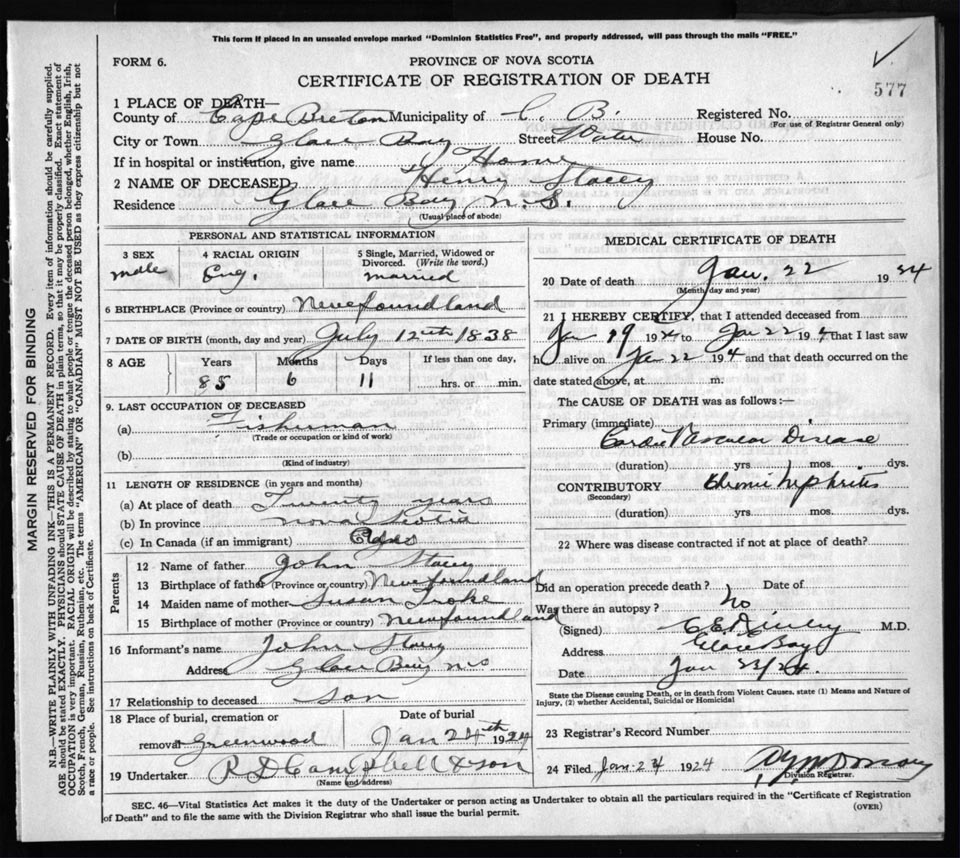 This form if placed in an unsealed envelope marked "Dominion Statistics Free", and properly addressed, will pass through the mails "FREE."
FORM 6.
PROVINCE OF NOVA SCOTIA
CERTIFICATE OF REGISTRATION OF DEATH
577
1 PLACE OF DEATH—
County of Cape Breton Municipality of C. B. Registered No.
(For use of Registrar General only)
City or Town Glace Bay Street Water House No.
If in hospital or institution, give name Home
2 NAME OF DECEASED Henry Stacey
Residence Glace Bay N. S.
(Usual place of abode)
PERSONAL AND STATISTICAL INFORMATION
3 SEX male
4 RACIAL ORIGIN Eng.
5 Single, Married, Widowed or Divorced. (Write the word.) married
6 BIRTHPLACE (Province or country) Newfoundland
7 DATE OF BIRTH (month, day and year) July 12th 1838
8 AGE Years Months Days If less than one day,
85 6 11 hrs. or min.
9. LAST OCCUPATION OF DECEASED
(a) Fisherman
(Trade or occupation or kind of work)
(b)
(Kind of industry)
11 LENGTH OF RESIDENCE (in years and months)
(a) At place of death Twenty years
(b) In province Nova Scotia
(c) In Canada (if an immigrant)
Parents
12 Name of father John Stacey
13 Birthplace of father (Province or country) Newfoundland
14 Maiden name of mother Susan Troke
15 Birthplace of mother (Province or country) Newfoundland
16 Informant's name John Stacy
Address Glace Bay N S
17 Relationship to deceased son
18 Place of burial, cremation or removal Greenwood
Date of burial Jan 24th 1924
19 Undertaker R D Campbell & son
(Name and address)
MEDICAL CERTIFICATE OF DEATH
20 Date of death Jan. 22 1924
(Month, day and year)
21 I HEREBY CERTIFY, that I attended deceased from
Ja 19 1924 to Ja 22 1924 that I last saw
h alive on Ja 22 1924 and that death occurred on the
date stated above, at m.
The CAUSE OF DEATH was as follows:—
Primary (immediate)
Cardio Vascular Disease
(duration) yrs. mos. dys.
CONTRIBUTORY Chronic Nephritis
(Secondary)
(duration) yrs. mos. dys.
22 Where was disease contracted if not at place of death?
Did an operation precede death? Date of
Was there an autopsy? no
(Signed) M.D.
Address Glace Bay
Date Jan 23/24.
State the Disease causing Death, or in death from Violent Causes, state (1) Means and Nature of
Injury, (2) whether Accidental, Suicidal or Homicidal
23 Registrar's Record Number
24 Filed Jan. 24 1924
Division Registrar.
SEC. 46—Vital Statistics Act makes it the duty of the Undertaker or person acting as Undertaker to obtain all the particulars required in the "Certificate of Registration
of Death" and to file the same with the Division Registrar who shall issue the burial permit.
(OVER)
MARGIN RESERVED FOR BINDING
N.B.—WRITE PLAINLY WITH UNFADING INK—THIS IS A PERMANENT RECORD. Every item of information should be carefully supplied.
AGE should be stated EXACTLY. PHYSICIANS should STATE CAUSE OF DEATH in plain terms, so that it may be properly classified. Exact statement of
OCCUPATION is very important. RACIAL ORIGIN will be described by stating to what people or tongue the deceased person belonged, whether English, Irish,
Scotch, French, German, Russian, Ruthenian, etc. The terms "AMERICAN" OR "CANADIAN" MUST NOT BE USED as they express citizenship but not
a race or people. See instructions on back of Certificate.